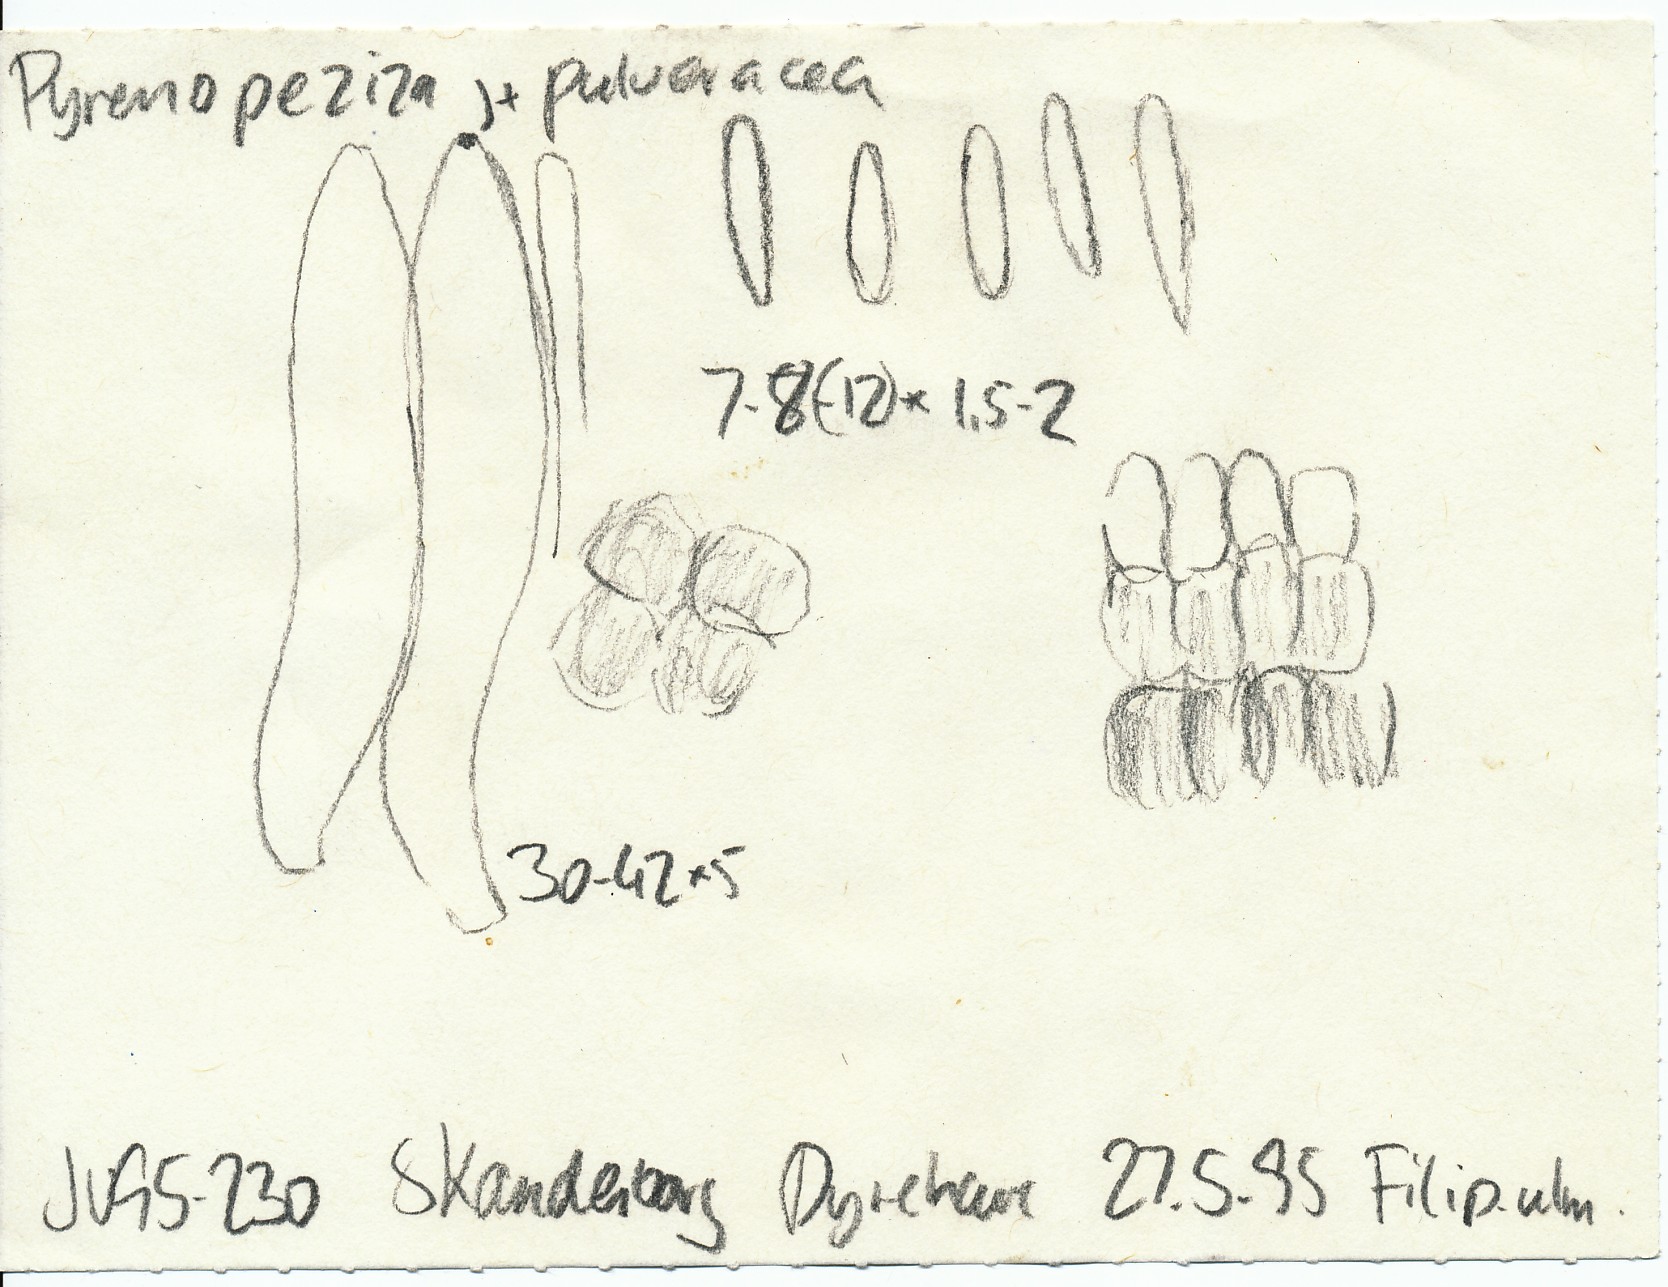 Pyrenopeziza J+ pulveracea
7-8(-12) × 1.5-2
30-42×5
JV95-230 Skanderborg Dyrehave 27.5.95 Filip.ulm.